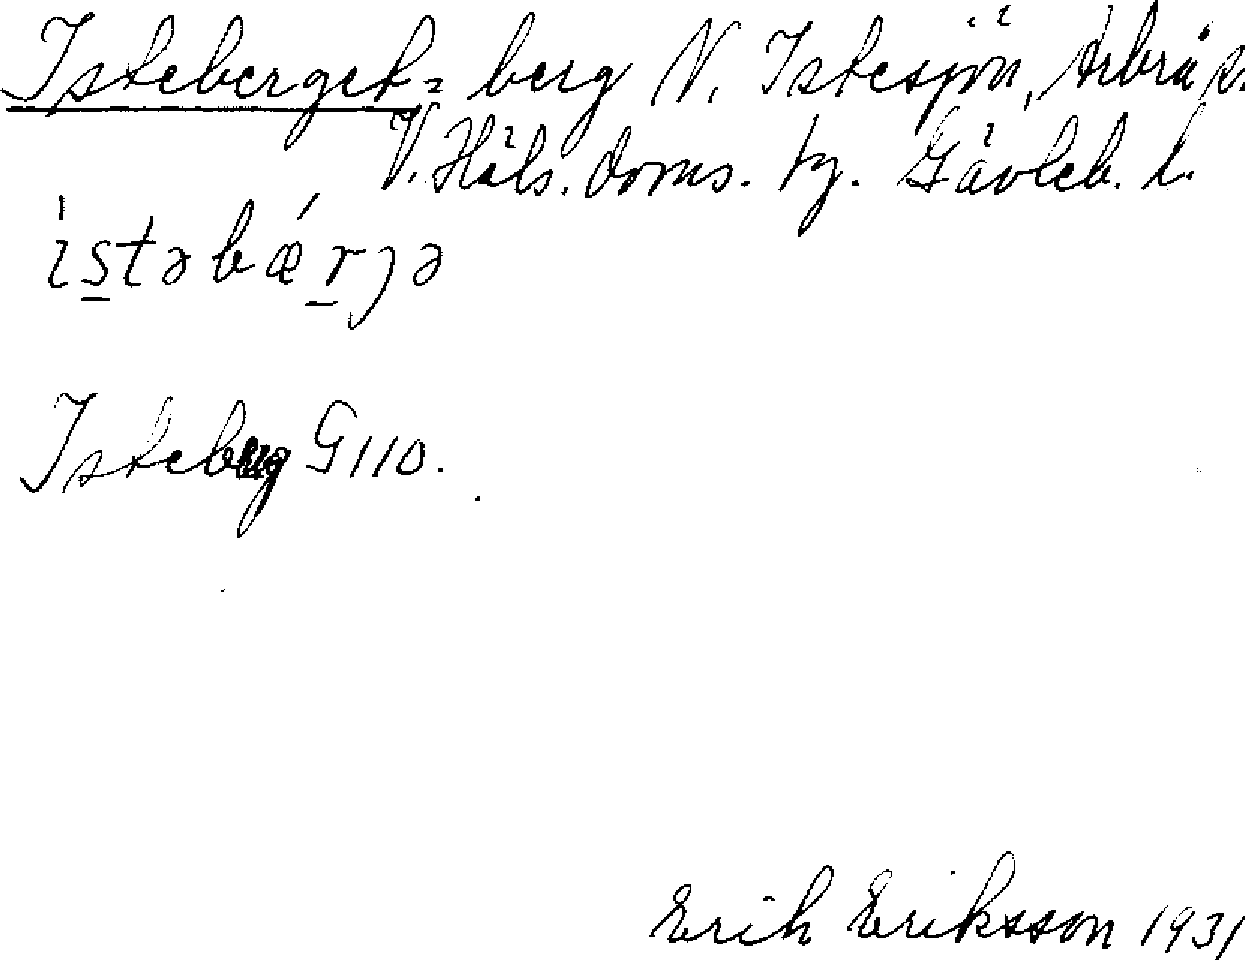 Isteberget = berg N. Istesjön, Arbrå s.
V. Häls. doms. tg. Gävleb. l.
ìs̲təbǽr̲jə
Isteberg G110.
Erik Eriksson 1931